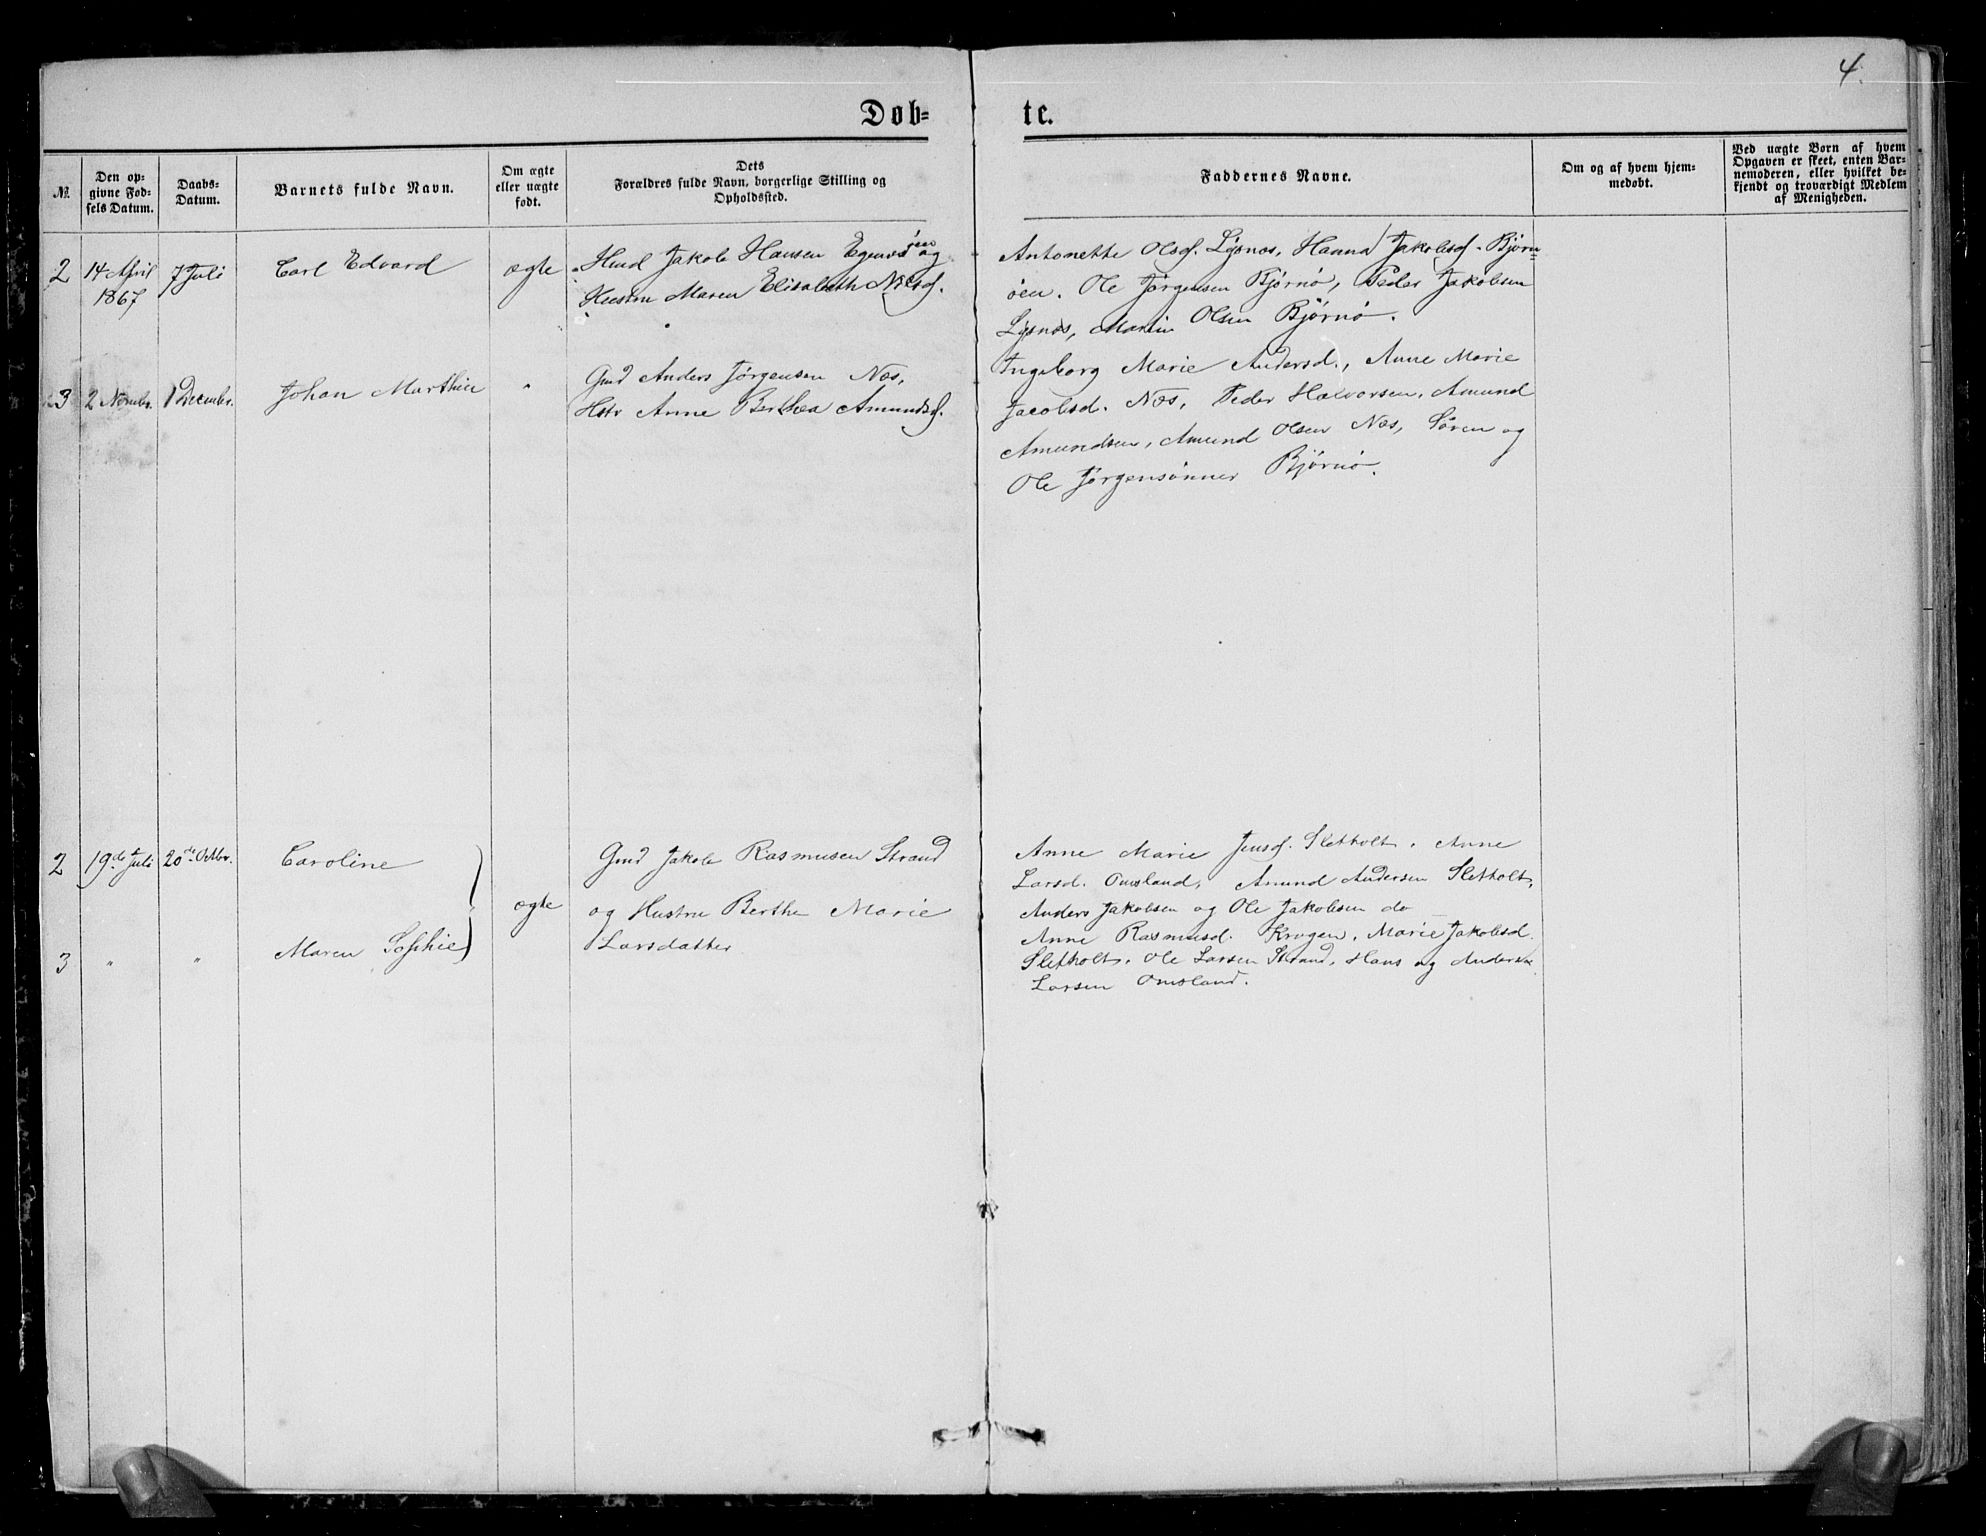 4.
Døb=
te.
№
Den op-
givne Fød-
sels Datum.
Daabs-
Datum.
Barnets fulde Navn.
Om ægte
eller uægte
født.
Dets
Forældres fulde Navn, borgerlige Stilling og
Opholdssted.
Faddernes Navne.
Om og af hvem hjem-
medøbt.
Ved uægte Børn af hvem
Opgaven er skeet, enten Bar-
nemoderen, eller hvilket be-
kjendt og troværdigt Medlem
af Menigheden.
2
14 April
1867
7 Juli
Carl Edvard
ægte
Hmd Jakob Hansen og
Hustru Maren Elisabeth Nilsd.
Antonette Olsd. Lysnæs, Hanna Jakobsd. Bjørn=
øen. Ole Jørgensen Bjørnø, Peder Jakobsen
Lysnæs, Martin Olsen Bjørnø.
3
2 Novmbr.
1 December.
Johan Marthin
"
Gmd Anders Jørgensen Næs,
Hstr Anne Berthea Amundsd.
Ingeborg Marie Andersd., Anne Marie
Jacobsd. Næs, Peder Halvorsen, Amund
Amundsen, Amund Olsen Næs, Søren og
Ole Jørgensønner Bjørnø.
2
19de Juli
20de Octbr.
Caroline
ægte
Gmd Jakob Rasmusen Strand
og Hustru Berthe Marie
Larsdatter
Anne Marie Jensd. Sletholt, Anne
Larsd. Omsland, Amund Andersen Sletholt,
Anders Jakobsen og Ole Jakobsen do
3
"
"
Maren Sophie
Anne Rasmusd. Krogen, Marie Jakobsd.
Sletholt, Ole Larsen Strand, Hans og Anders
Larsen Omsland.